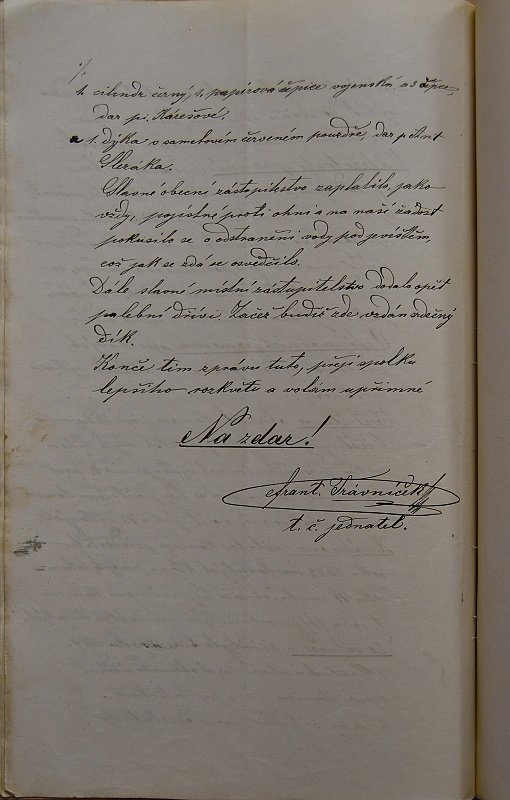 1. cilindr černý, 1. papírová čepice vojenská a 3 čepce,
dar pí. Kárešové,
a 1. dýka v sametovém červeném pouzdře, dar p. Ant.
Slezáka.
Slavné obecní zástupitelstvo zaplatilo, jako
vždy, pojistné proti ohni a na naší žádost
pokusilo se o odstranění vody pod jevištěm,
což jak se zdá se osvědčilo.
Dále slavné místní zástupitelstvo dodalo opět
palební dříví. Začež budiž zde vzdán srdečný
dík.
Konče tím zprávu tuto, přeji spolku
lepšího rozkvětu a volám upřímné
Na zdar!
Frant. Trávníček
t. č. jednatel.